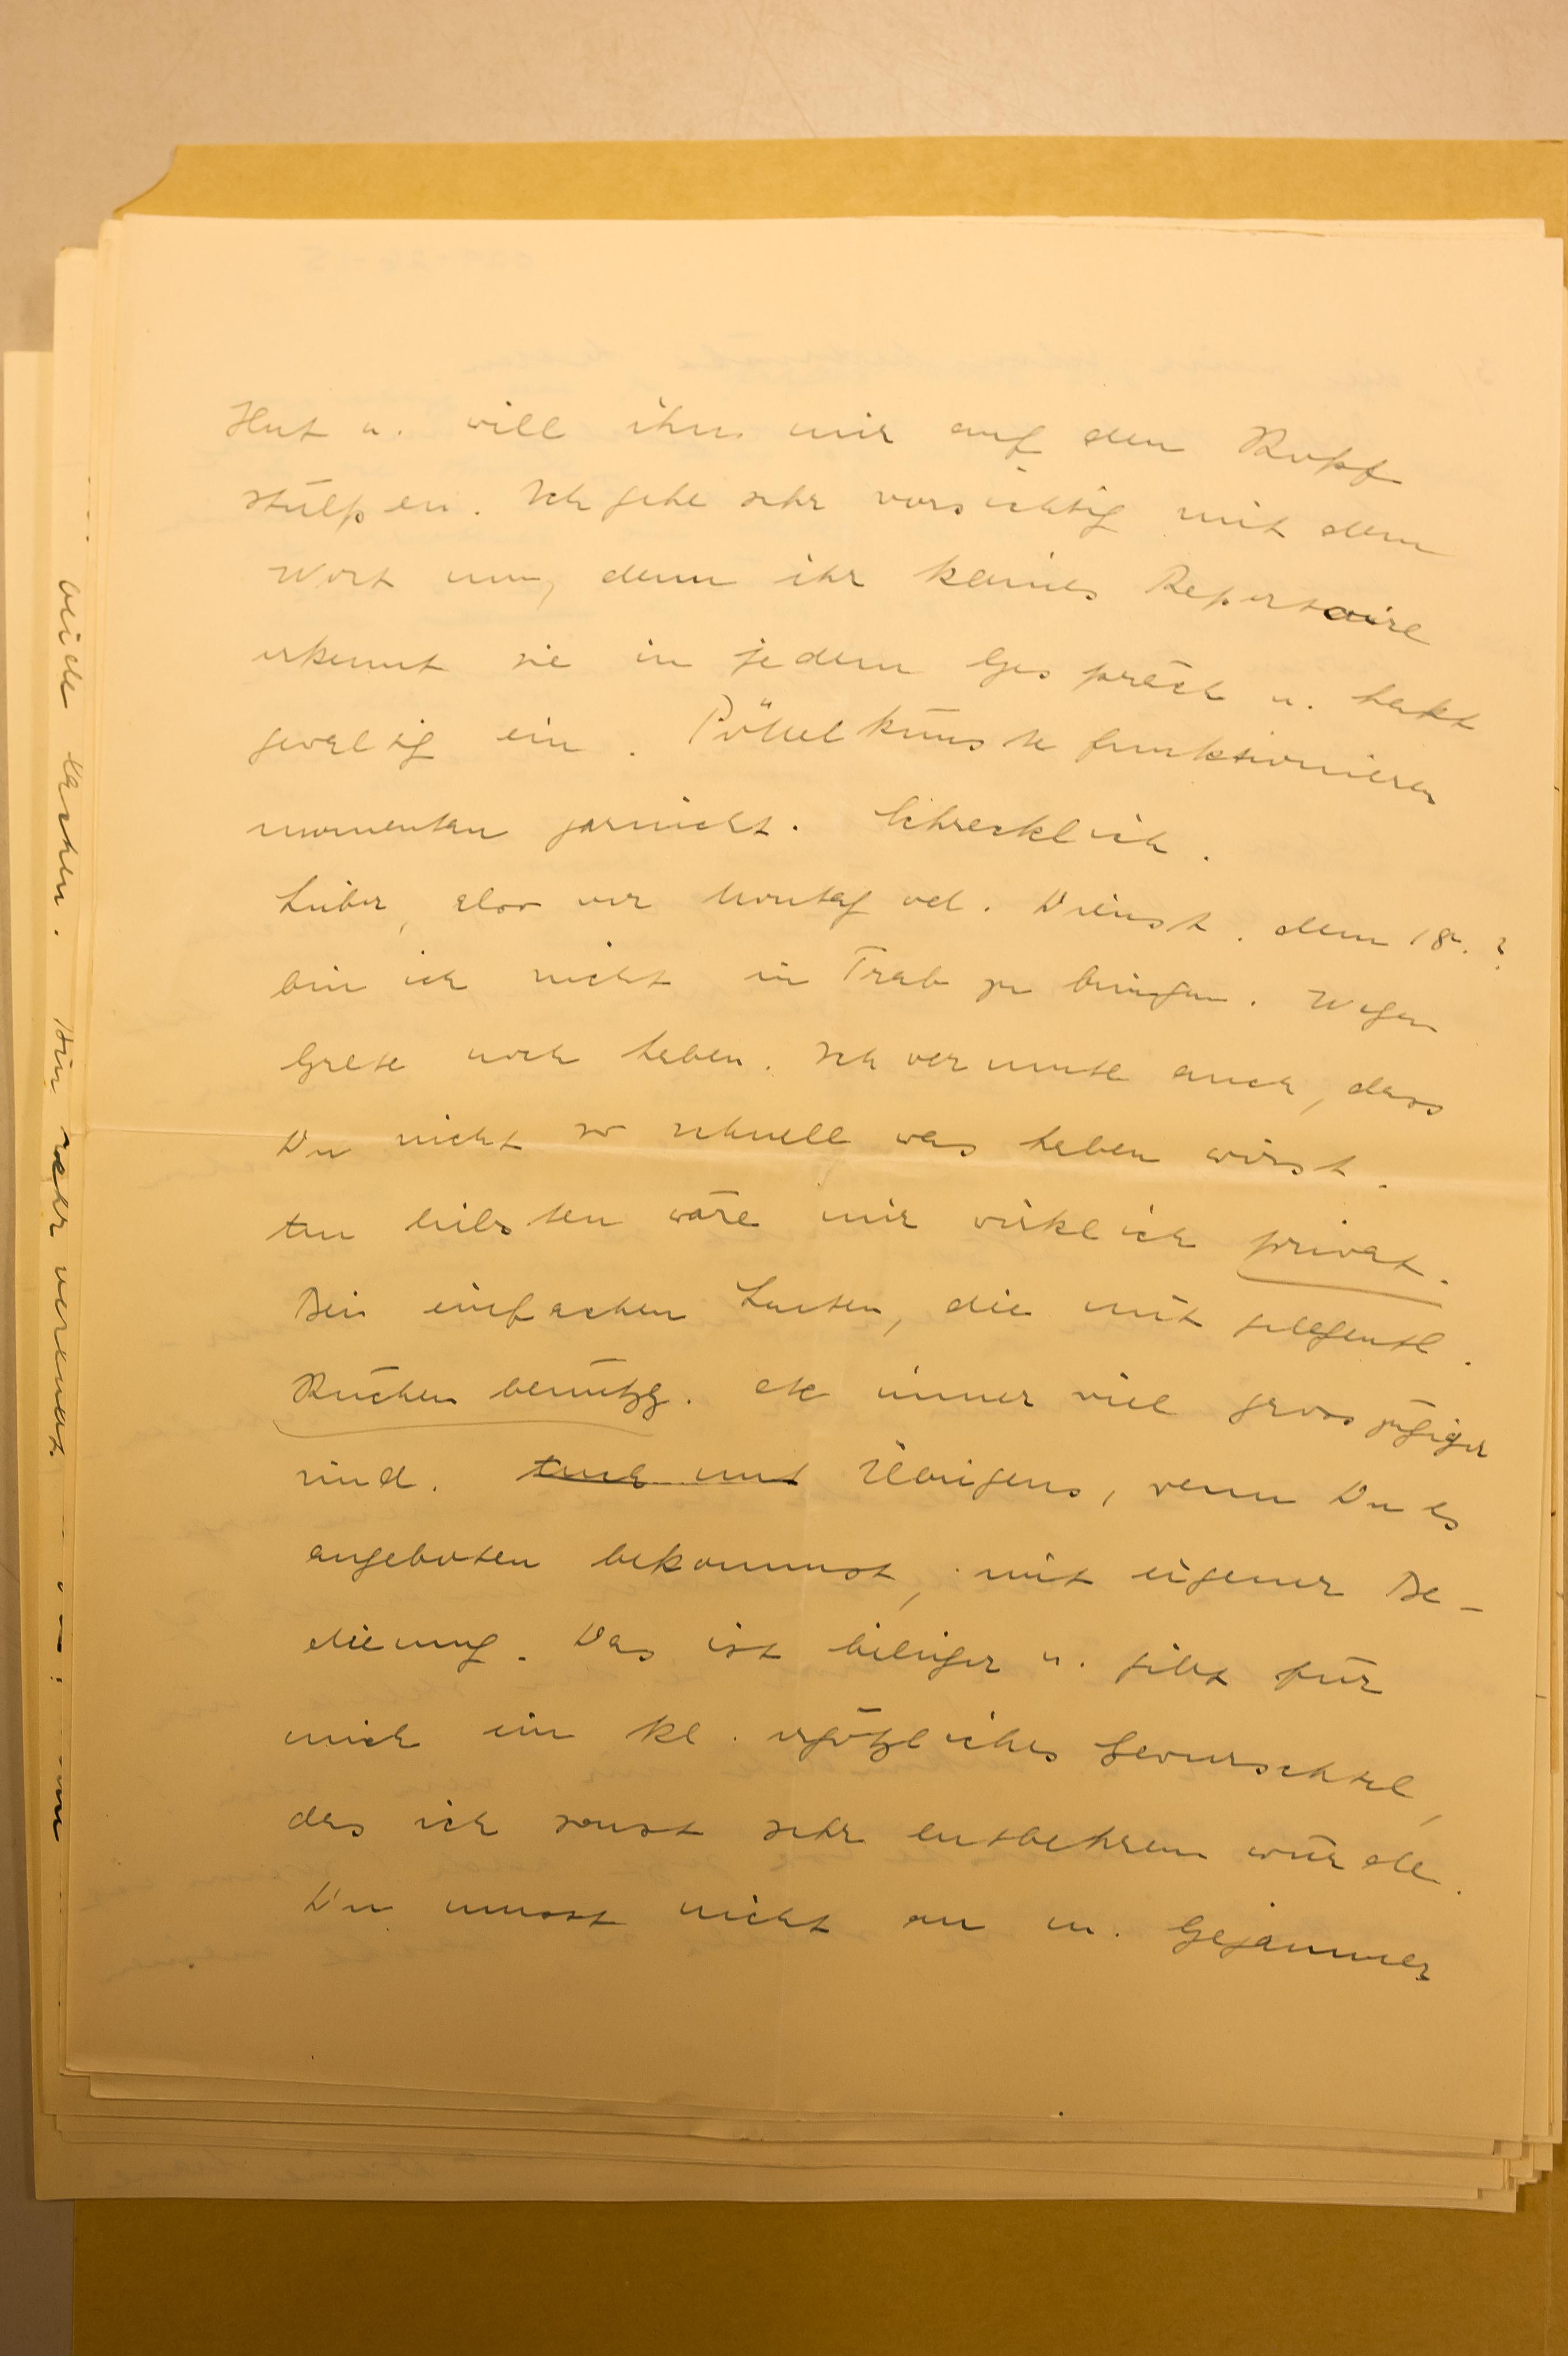 Hut u. will ihn mir auf den Kopf
stülpen. Ich gehe sehr vorsichtig mit dem
Wort um, denn ihr kleines Repertoire
erkennt sie in jedem Gespräch u. hakt
gewaltig ein. künste funktionieren
momentan garnicht. Schrecklich.
Lieber, also vor Montag od. Dienst. dem 18. ?
bin ich nicht in Trab zu bringen. Wegen
Grete noch haben. Ich vermute auch, dass
Du nicht so schnell was haben wirst.
Am liebsten wäre mir wirklich privat.
Bei einfachen Leuten, die mit gelegentl.
Küchenbenützg. etc immer viel grosszügiger
sind. Auch mit Übrigens, wenn Du es
angeboten bekommst, mit eigener Be-
dienung. Das ist billiger u. gibt für
mich ein kl. ergötzliches Gewurschtel,
das ich sonst sehr entbehren würde.
Du musst nicht an m. Gejammer
beide lachen. Bin sehr verliebt